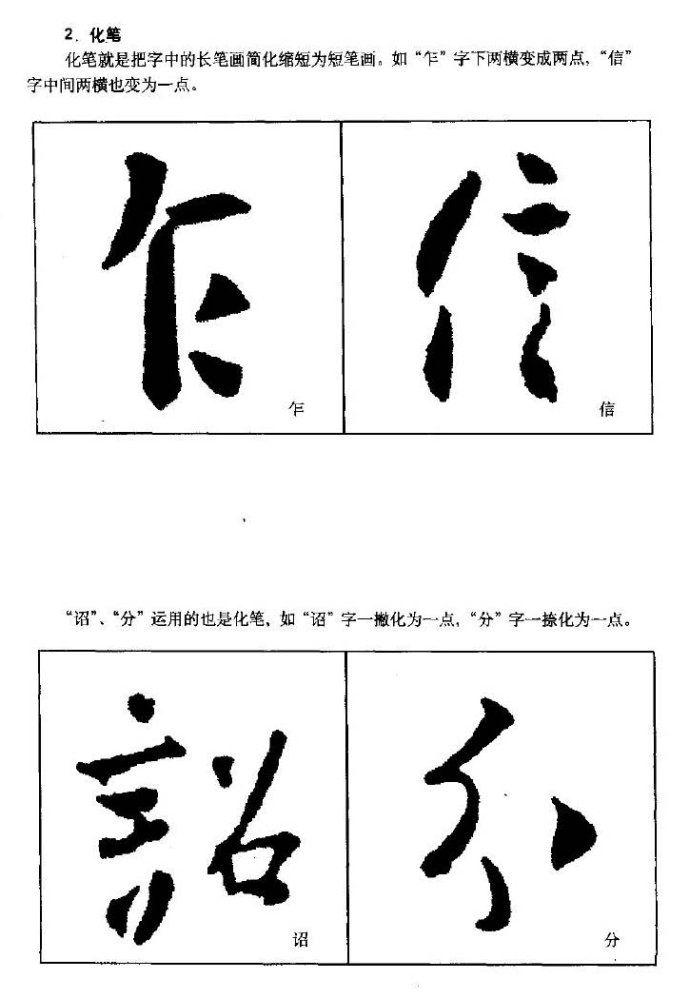 2．化笔
化笔就是把字中的长笔画简化缩短为短笔画。如“乍”字下两横变成两点，“信”
字中间两横也变为一点。
乍 信
乍 信
“诏”、“分”运用的也是化笔，如“诏”字一撇化为一点，“分”字一捺化为一点。
詔 分
诏 分